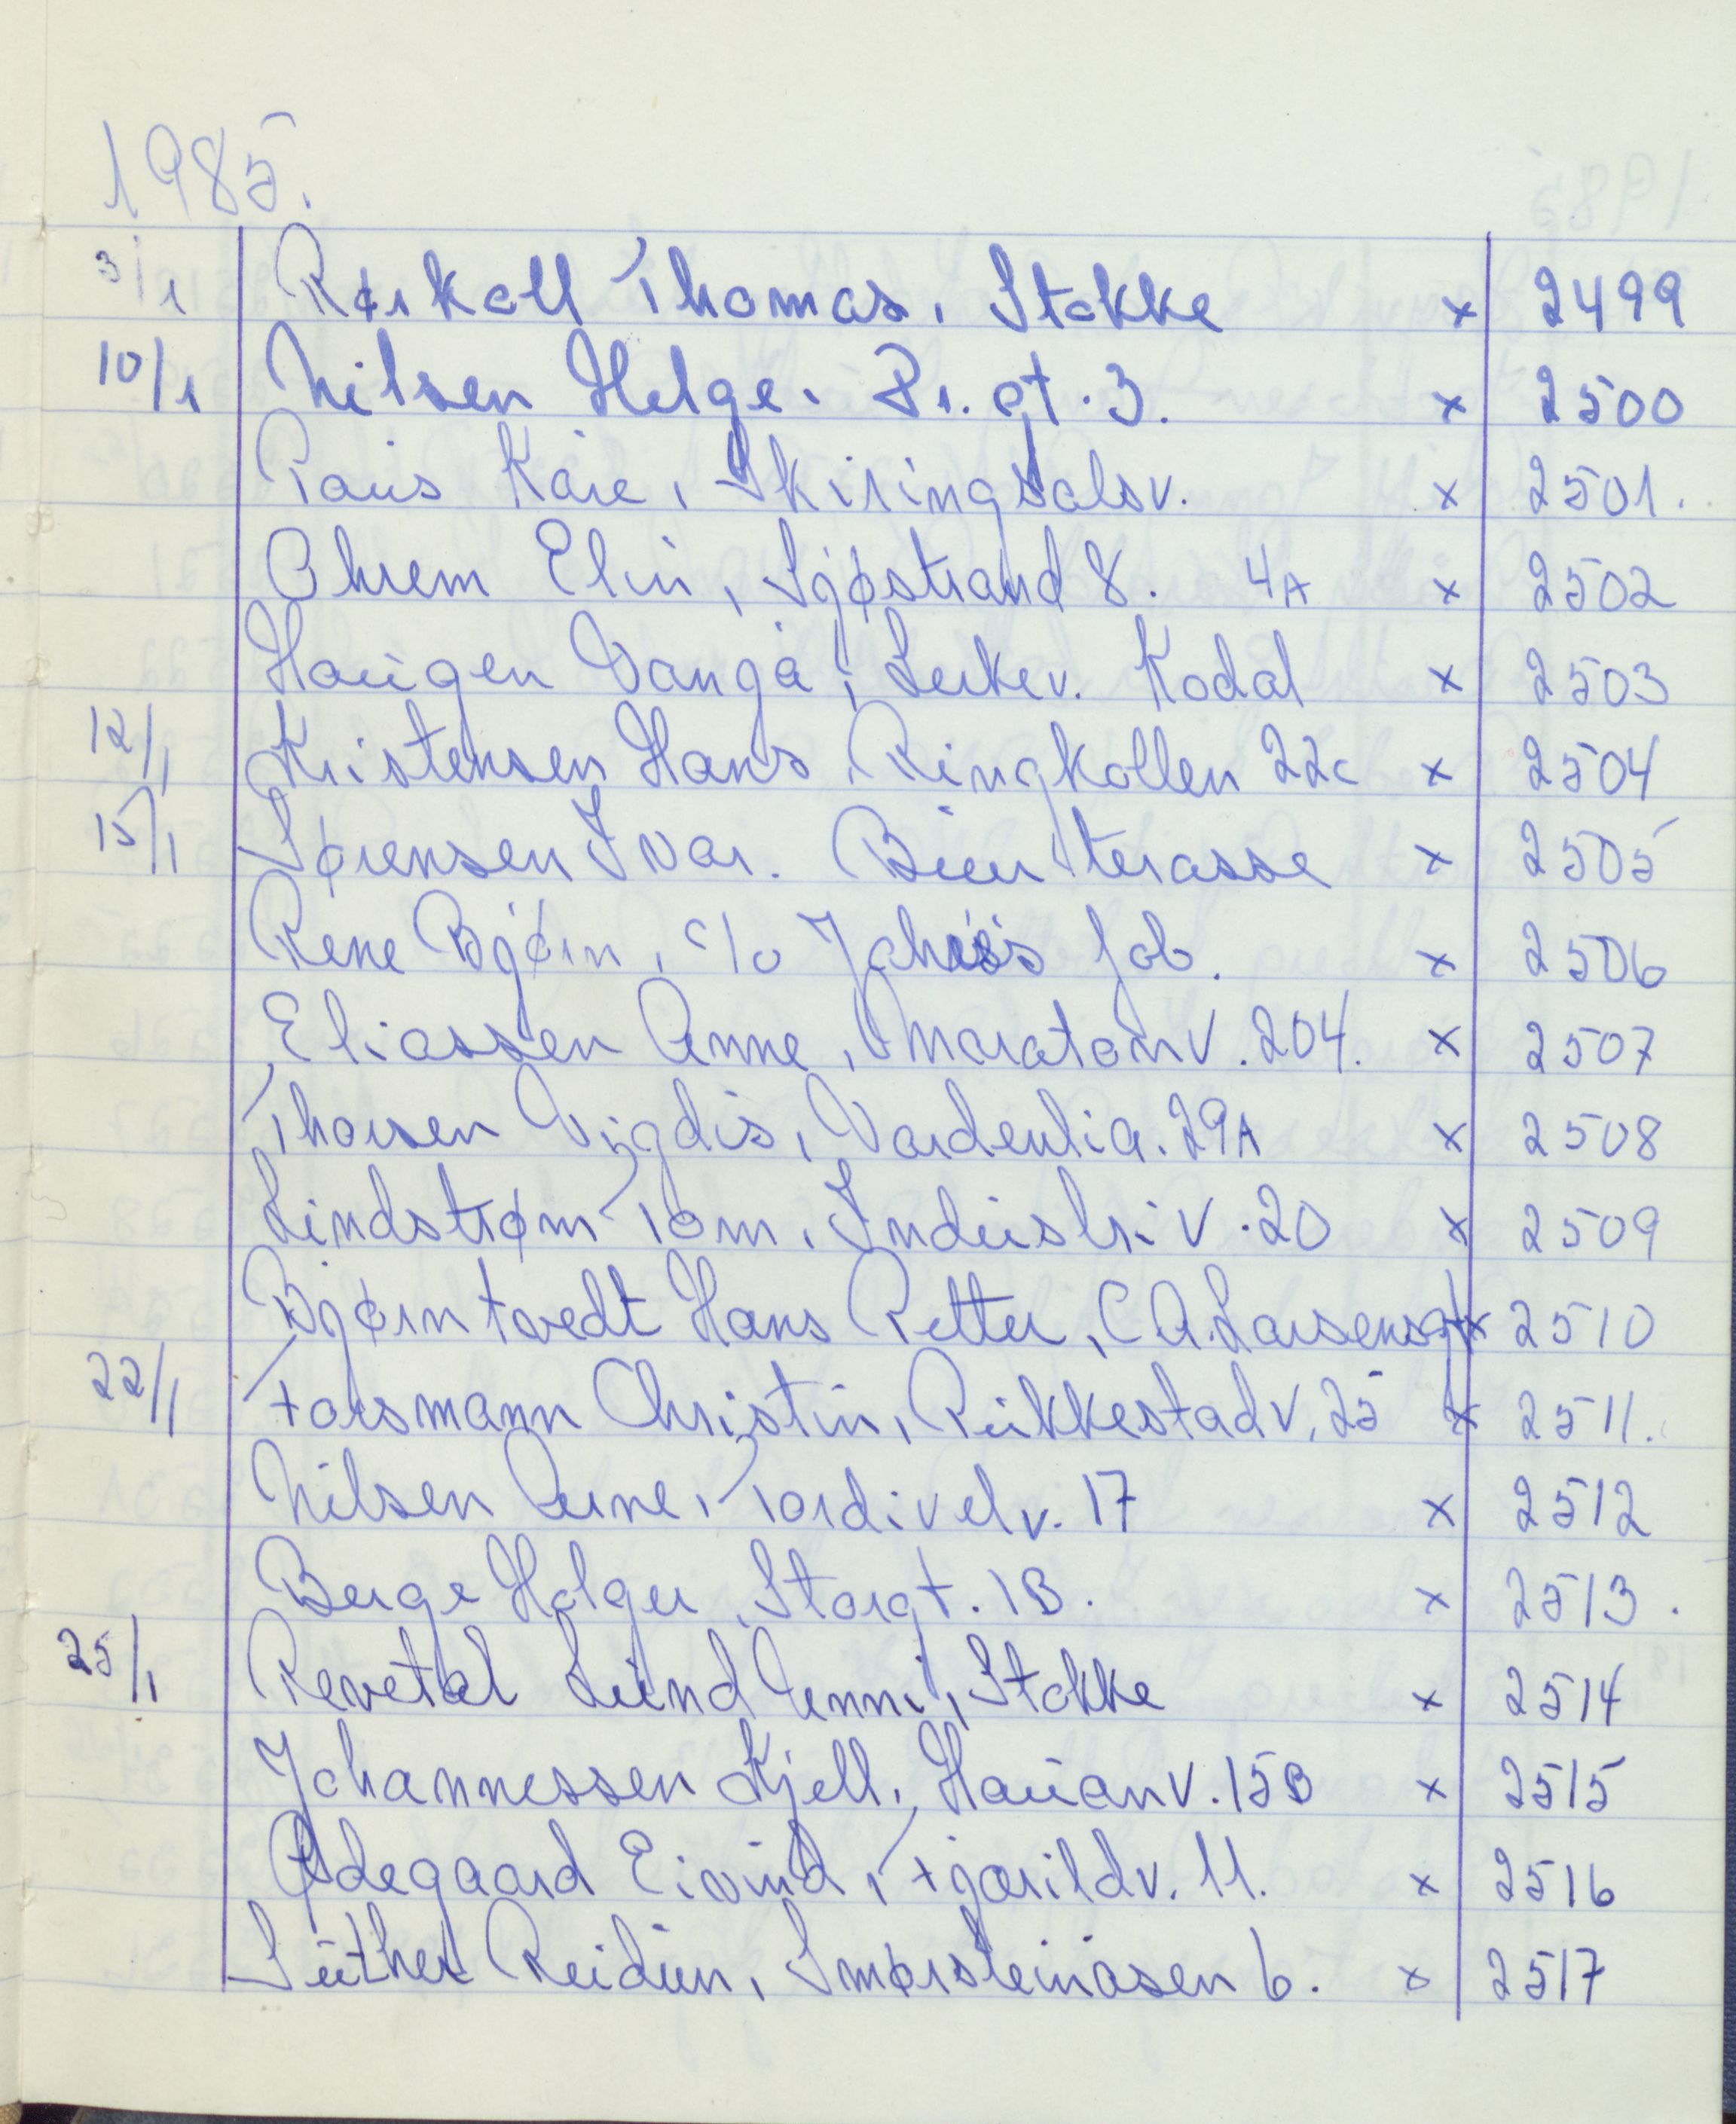 1985.
3/1 Rørkoll Thomas, Stokke x 2499
10/1 Nilsen Helge. Pr. gt. 3. x 2500
Pavis Kåre, Skiringsalsv. x 2501.
Ohrem Elin, Sjøstrand 8. 4A x 2502
Haugen Vanja, Leirkev. Kodal x 2503
12/1 Kristensen Hans, Ringkollen 22c x 2504
15/1 Sørensen Ivar. Buer terasse x 2505
Rene Bjørn, c/o Jahres fab. x 2506
Eliassen Anne, Maratonv. 204. x 2507
Thorsen Vigdis, Vardenlia. 29A x 2508
Lindstrøm Tom, Industriv. 20 x 2509
Bjørntvedt Hans Petter, C A. Larsensgt x 2510
22/1 Forsmann Christin, Pukkestadv. 25 x 2511.
Nilsen Arne, Tordivelv. 17 x 2512
Berge Holger, Storgt. 1B. x 2513.
25/1 Revetal Lund Anni, Stokke x 2514
Johannessen Kjell, Hauanv. 15B x 2515
Ødegaard Eivind, Fjærildv. 11. x 2516
Luther Reidun, Smørsteinåsen 6. x 2517